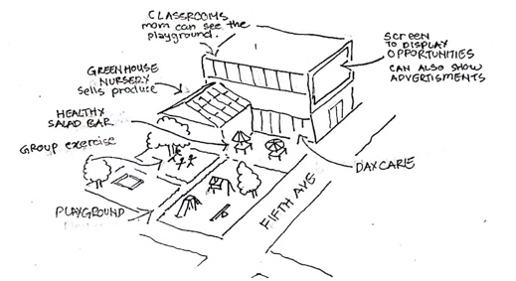 CLASSROOMS
mom can see the
playground.
SCREEN
TO DISPLAY
OPPORTUNITIES
CAN ALSO SHOW
ADVERTISMENTS
GREENHOUSE
NURSERY
sells produce
HEALTHY
SALAD BAR
GROUP exercise
DAYCARE
PLAYGROUND
FIFTH AVE